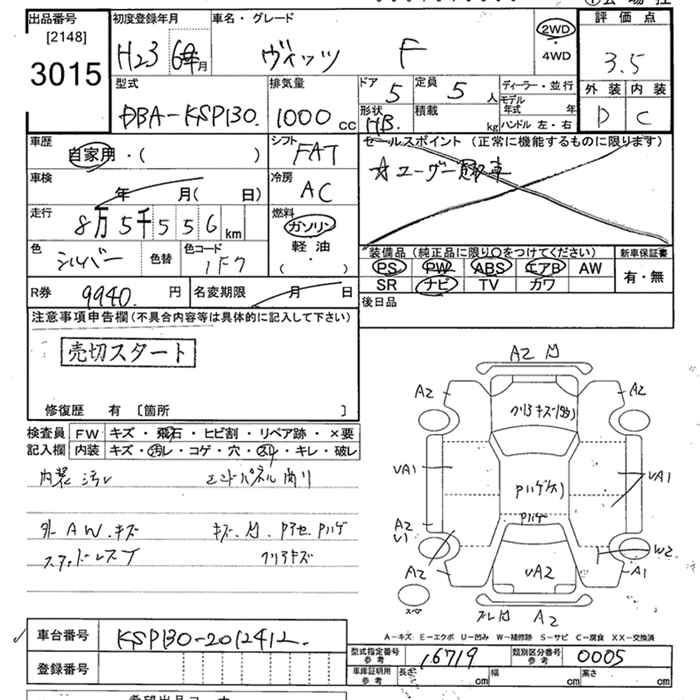 出品番号 [2148] 3015
初度登録年月 H23 6年月
車名・グレード ヴィッツ F
2WD・4WD
評価点 3.5
外装 D 内装 C
型式 DBA-KSP130.
排気量 1000 cc
ドア 5 定員 5 人
形状 HB 積載 kg
ディーラー・並行
モデル年式 年
ハンドル 左・右
車歴 自家用・( )
シフト FAT
セールスポイント (正常に機能するものに限ります)
☆ユーザー買取車
車検 年 月( 日)
冷房 AC
走行 8万5千556 km
燃料 ガソリン 軽油 ( ・ )
色 シルバー 色替 色コード 1F7
装備品 (純正品に限り○をつけてください)
新車保証書 有・無
PS PW ABS エアB AW
SR ナビ TV カワ
R券 9940. 円 名変期限 月 日
後日品
注意事項申告欄(不具合内容等は具体的に記入して下さい)
売切スタート
修復歴 有 [箇所 ]
検査員記入欄
FW キズ・飛石・ヒビ割・リペア跡・×要
内装 キズ・汚レ・コゲ・穴・スレ・キレ・破レ
内装汚レ エンドパネル凹リ
外 AW.キズ
スタッドレス
クリアキズ
A2 凹
A2
A2
VA1
VA1
A2
V1
A2
W2
A1
VA2
A2
スペア
A-キズ E-エクボ U-凹み W-補修跡 S-サビ C-腐食 XX-交換済
車台番号 KSP130-2012412.
型式指定番号 参考 16719 類別区分番号 参考 0005
登録番号
車庫証明用 参考 長さ cm 幅 cm 高さ cm